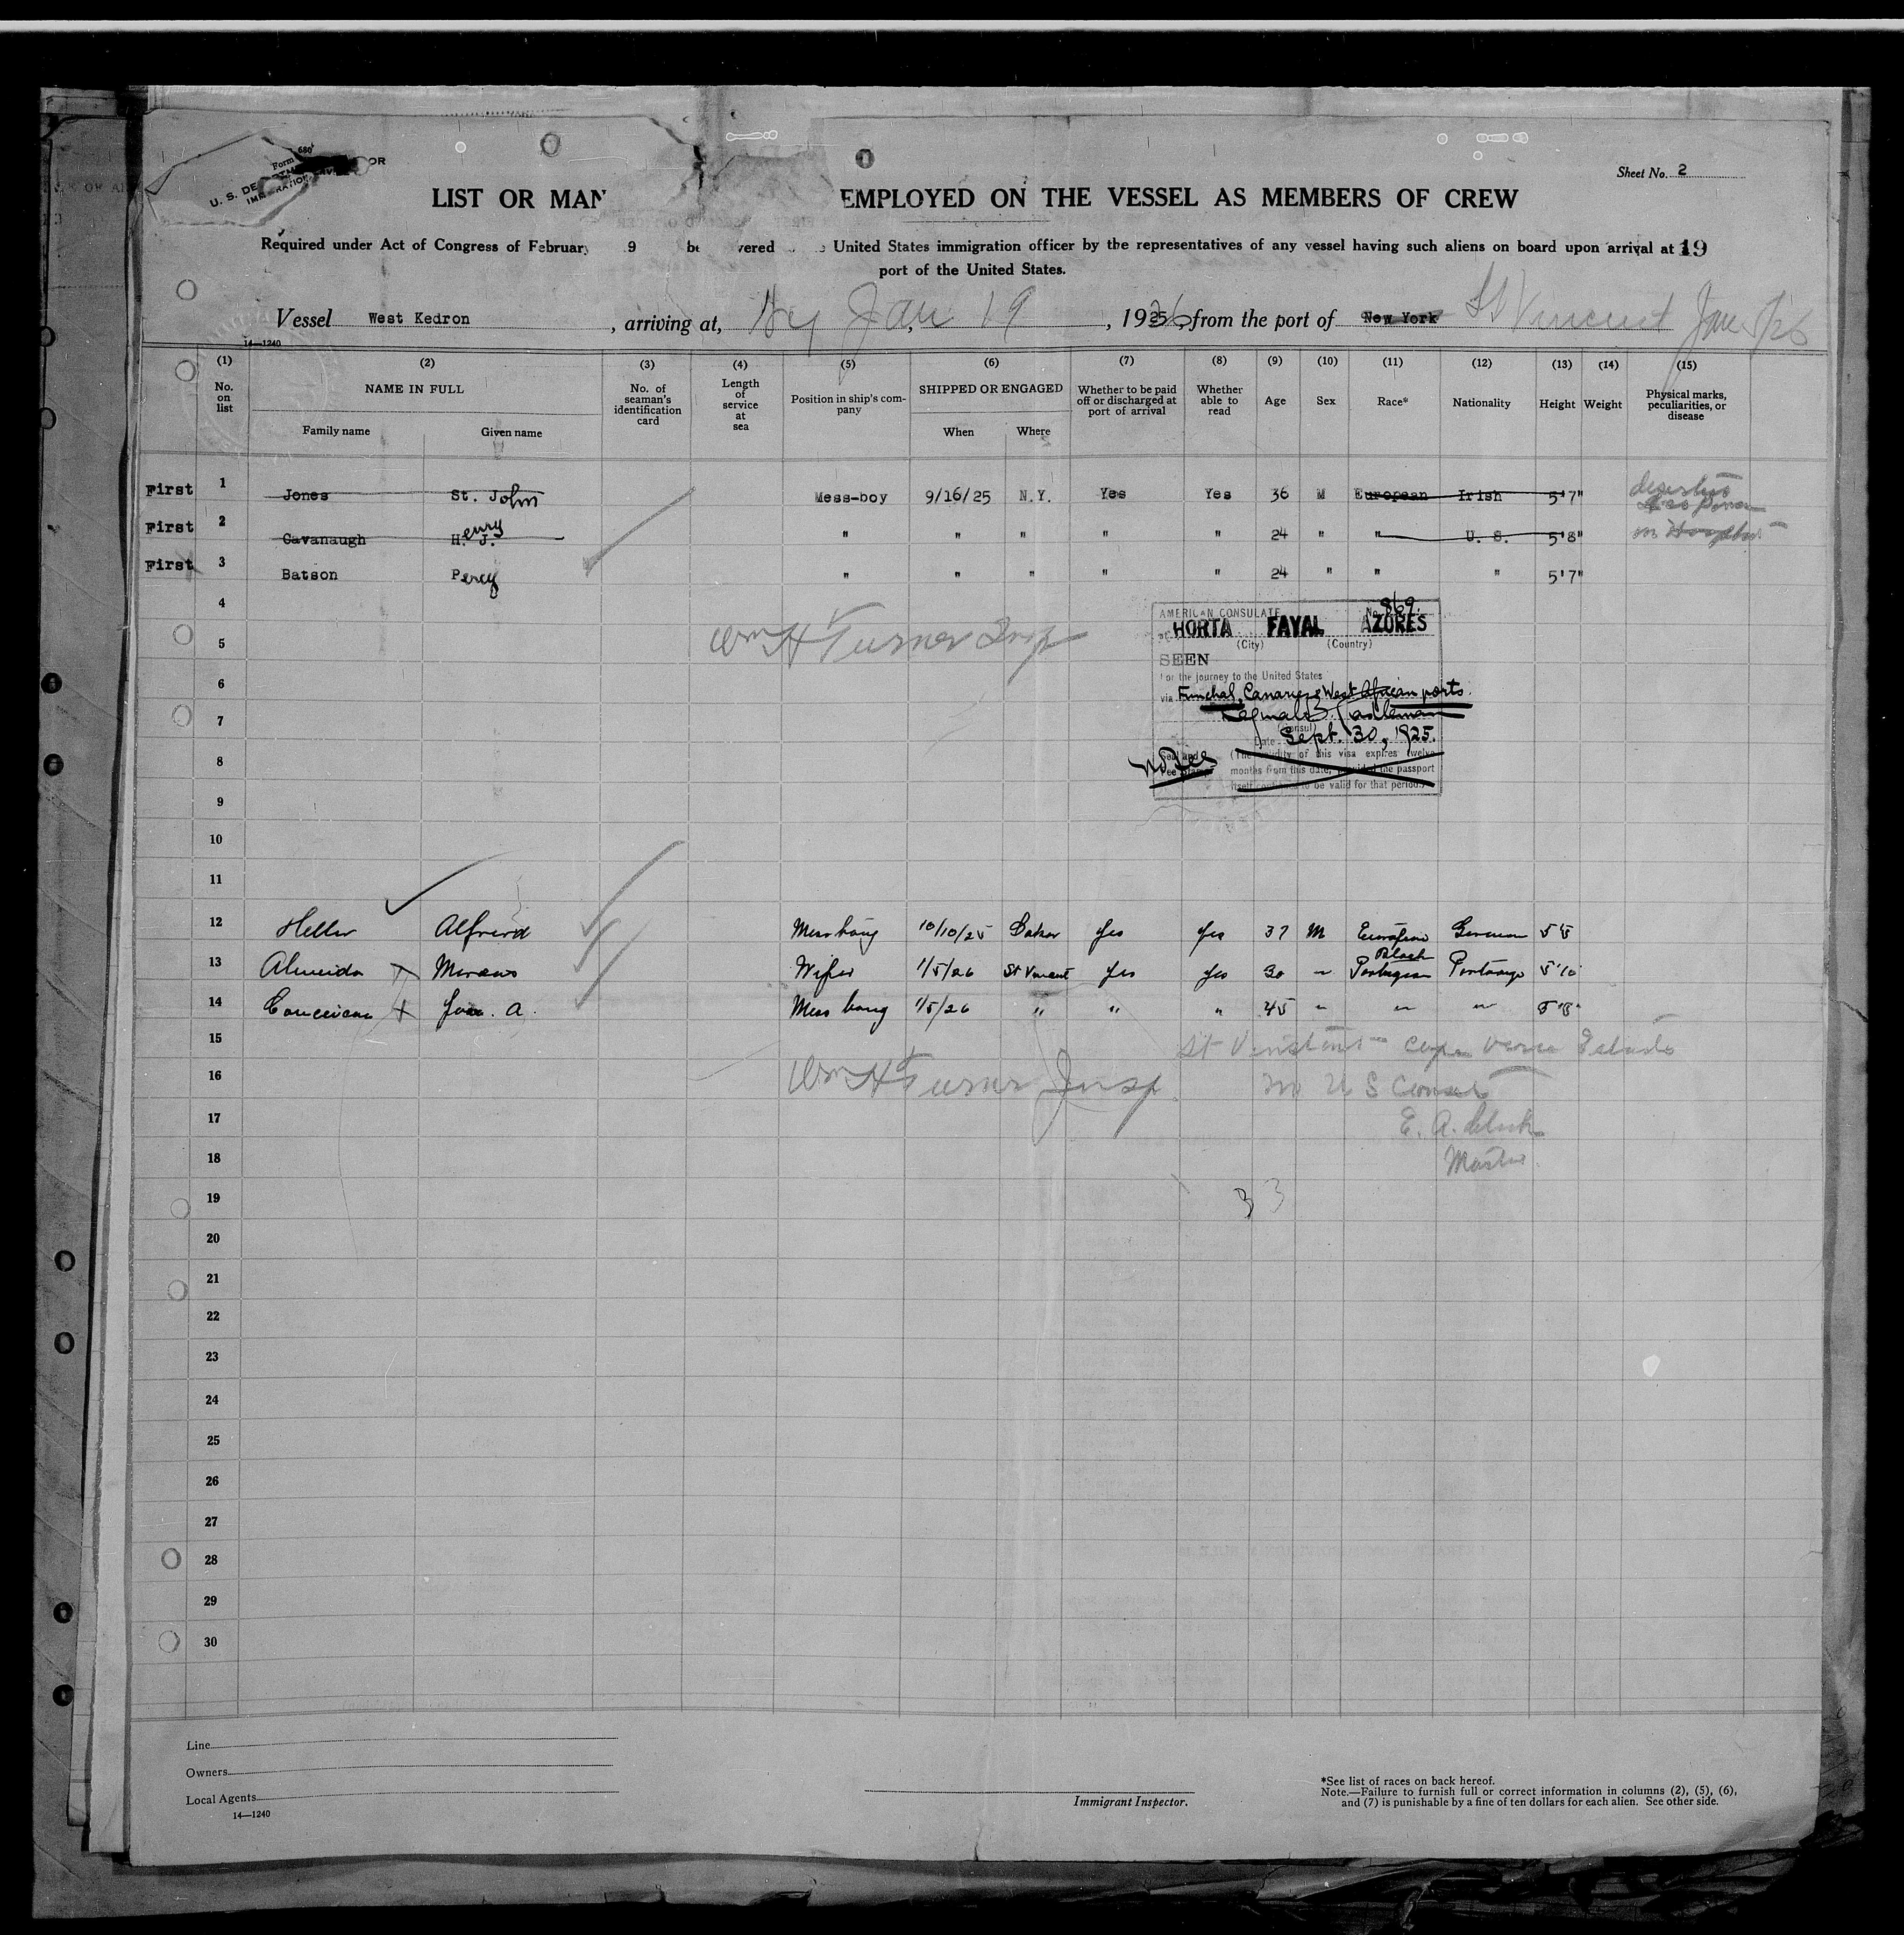 Form 680
U. S. DE OR
IMMIGRATION
Sheet No. 2
LIST OR MAN EMPLOYED ON THE VESSEL AS MEMBERS OF CREW
Required under Act of Congress of February 9 be vered United States immigration officer by the representatives of any vessel having such aliens on board upon arrival at 19
port of the United States.
Vessel West Kedron , arriving at, Ny Jan 19 , 1926, from the port of New York St Vincent Jan 5/26
14—1240
(1) (2) (3) (4) (5) (6) (7) (8) (9) (10) (11) (12) (13) (14) (15)
No. on list NAME IN FULL No. of seaman's identification card Length of service at sea Position in ship's company SHIPPED OR ENGAGED Whether to be paid off or discharged at port of arrival Whether able to read Age Sex Race* Nationality Height Weight Physical marks, peculiarities, or disease
Family name Given name When Where
First 1 Jones St. John Mess-boy 9/16/25 N.Y. Yes Yes 36 M European Irish 5'7" deserted
First 2 Cavanaugh Henry J. " " " " " 24 " " U. S. 5'8" in Hospital
First 3 Batson Percy " " " " " 24 " " " 5'7"
4
AMERICAN CONSULATE No. 869.
at HORTA FAYAL AZORES
(City) (Country)
5 Wm H Turner Insp
SEEN
For the journey to the United States
6
via Funchal, Canaries, West African ports.
7
(Consul)
Date Sept. 30, 1925.
8
No Fee
Seal and Fee Stamp (The validity of this visa expires twelve
months from this date, provided the passport
itself continues to be valid for that period.)
9
10
11
12 Heller Alfred Mess boy 10/10/25 Dakar Yes Yes 37 M European German 5'5
13 Almeida Wiper 1/5/26 St Vincent Yes Yes 30 " Black Portugese Portuguese 5'10
14 Conceicao + Joao. A. Mess boy 1/5/26 " " " 45 " " " 5'8"
15 St Vincent Cape Verde Islands
16 Wm H Turner Insp. No U S Consul
17 E. A.
18 Master
19 33
20
21
22
23
24
25
26
27
28
29
30
Line
Owners
Local Agents
14—1240
Immigrant Inspector.
*See list of races on back hereof.
Note.—Failure to furnish full or correct information in columns (2), (5), (6),
and (7) is punishable by a fine of ten dollars for each alien. See other side.